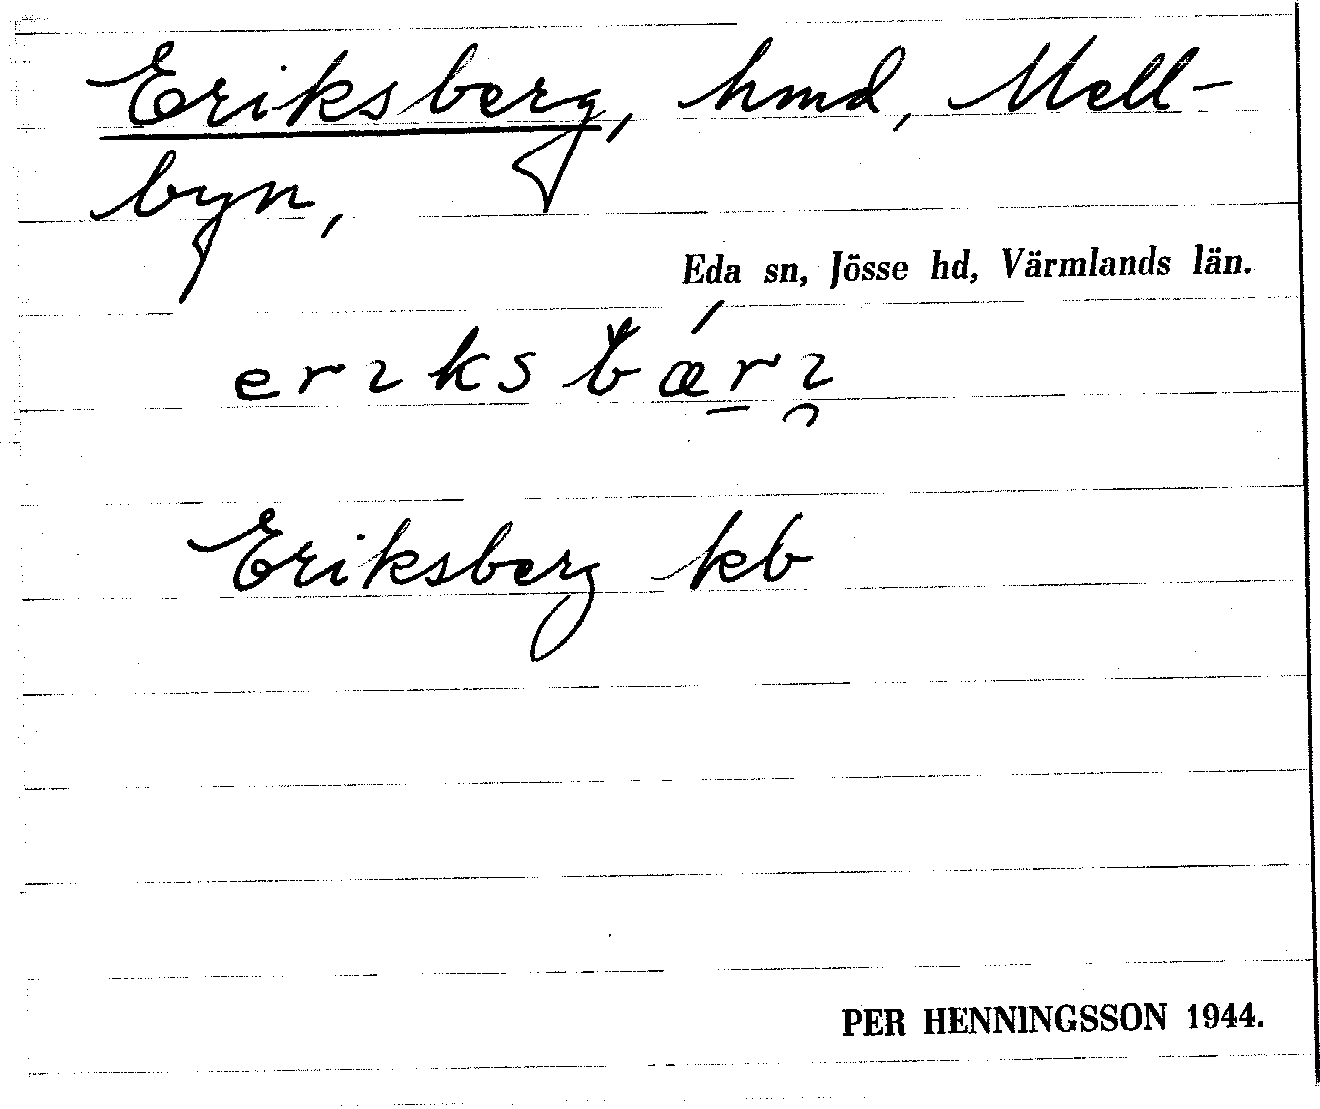 Eriksberg, hmd, Mell-
byn,
Eda sn, Jösse hd, Värmlands län.
Eriksberg kb
PER HENNINGSSON 1944.